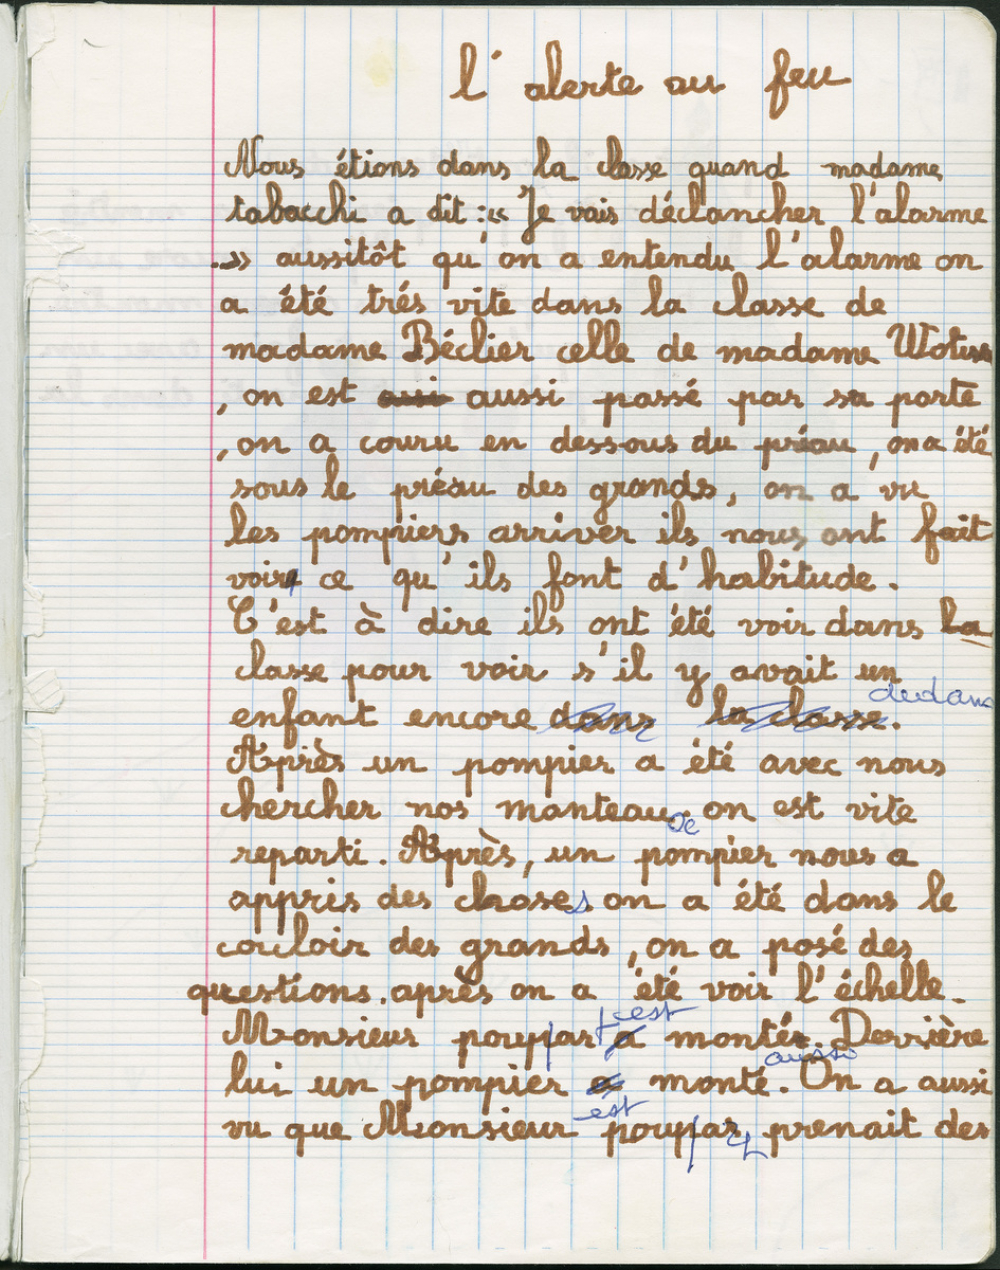 l'alerte au feu
Nous étions dans la classe quand madame
tabacchi a dit : « Je vais déclancher l'alarme
.» aussitôt qu'on a entendu l'alarme on
a été trés vite dans la classe de
madame Béclier celle de madame
, on est aussi passé par sa porte
, on a couru en dessous du préau, on a été
sous le préau des grands, on a vu
les pompiers arriver ils nous ont fait
voir ce qu'ils font d'habitude.
C'est à dire ils ont été voir dans la
classe pour voir s'il y avait un
dedans
enfant encore dans la classe.
Après un pompier a été avec nous
chercher nos manteaux on est vite
reparti. Après, un pompier nous a
appris des choses on a été dans le
couloir des grands, on a posé des
questions. après on a été voir l'échelle.
est
Monsieur a monté. Derrière
aussi
lui un pompier a monté. On a aussi
est
vu que Monsieur prenait des